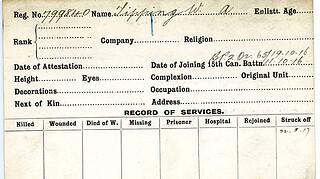 Reg. No. 799840 Name Tipping W. A. Enlistt. Age
Rank
Company Religion
BP2 Dr 65 19.10.16
Date of Attestation Date of Joining 15th Can. Battn. 11.10.16
Height Eyes Complexion Original Unit
Decorations Occupation
Next of Kin Address
RECORD OF SERVICES.
Killed Wounded Died of W. Missing Prisoner Hospital Rejoined Struck off